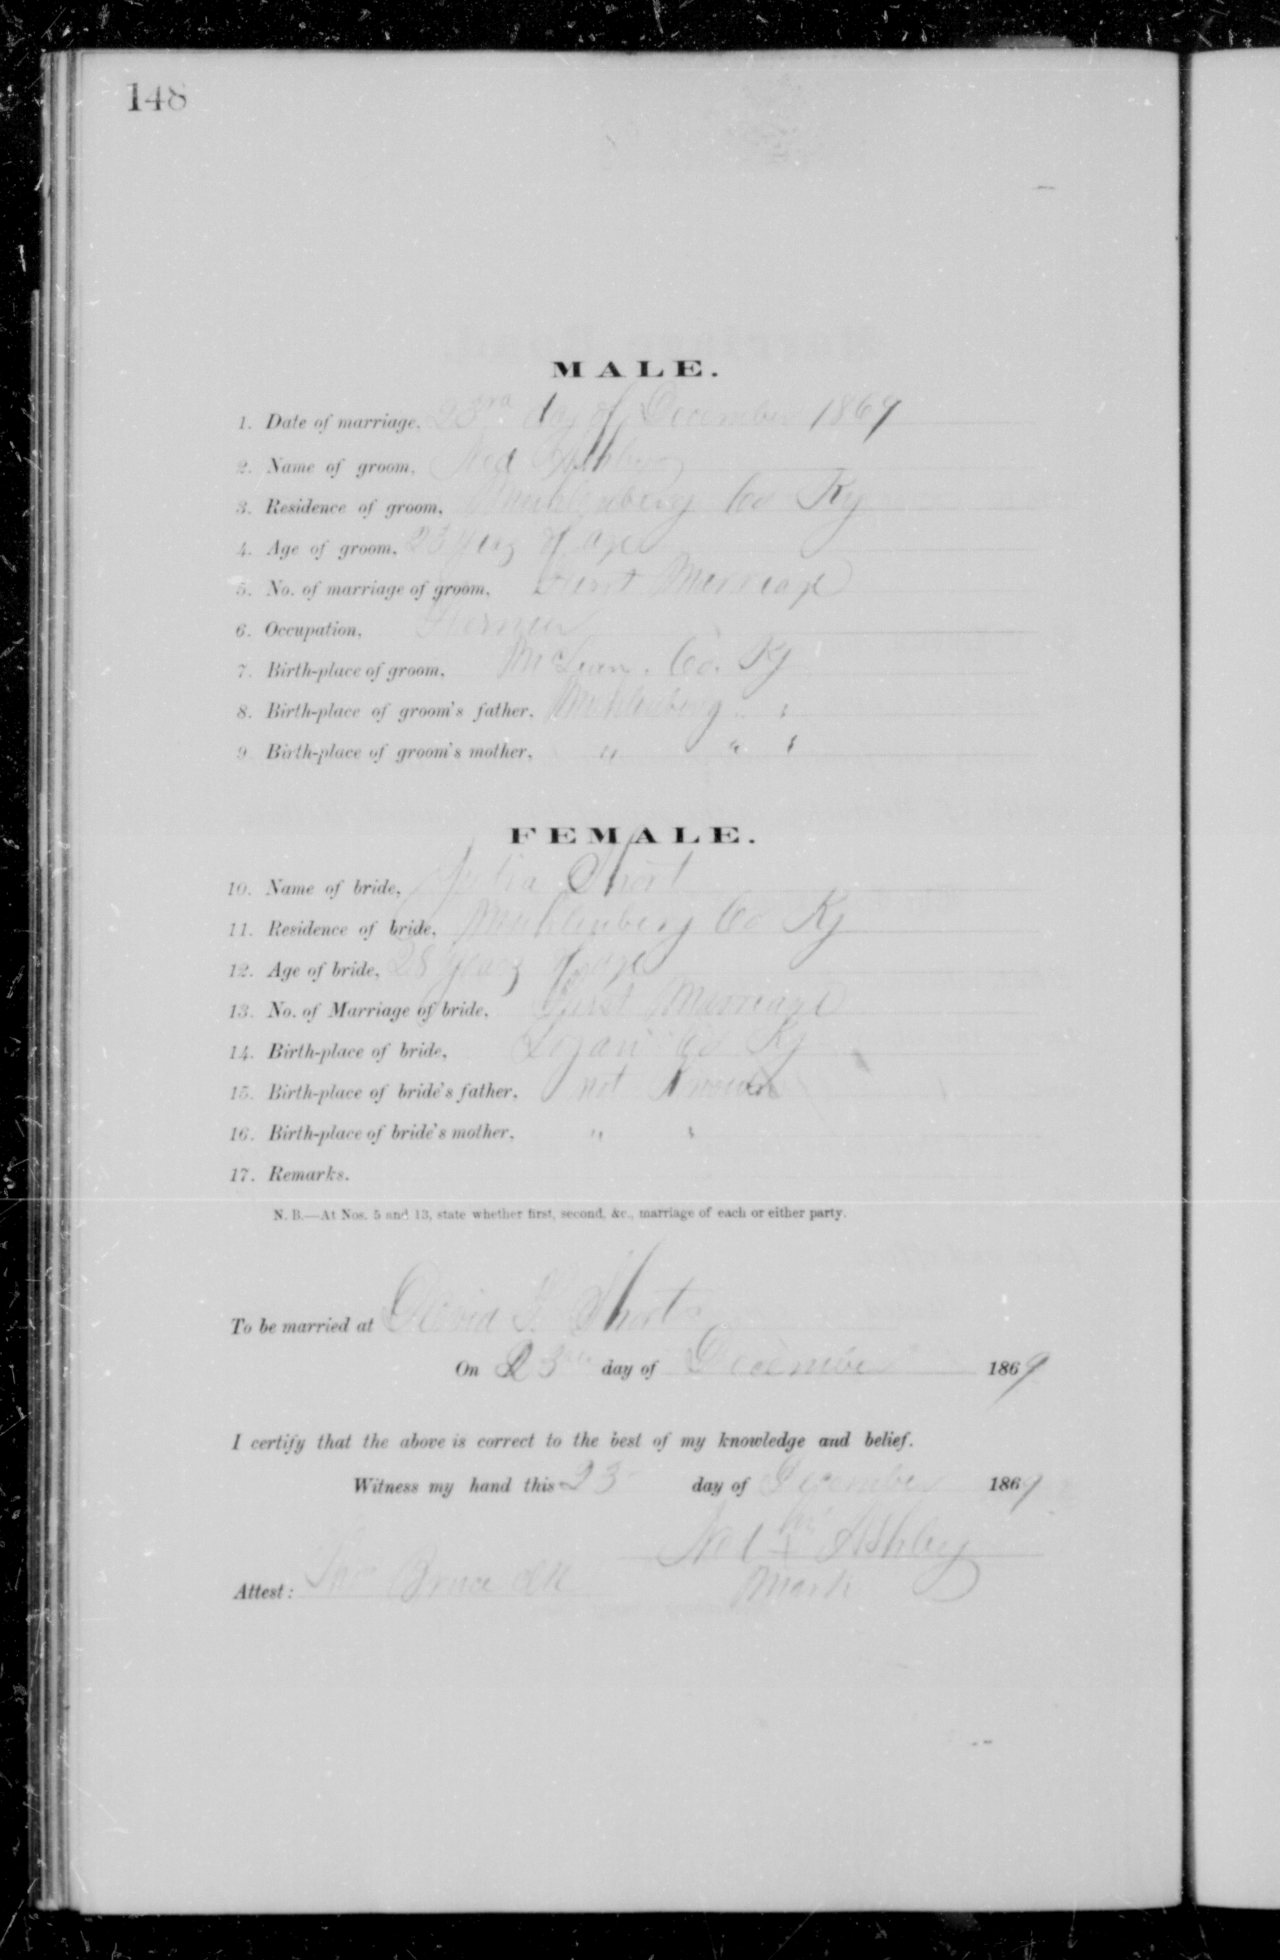 148
MALE.
1. Date of marriage, 23rd day of December 1869
2. Name of groom, Ned Ashby
3. Residence of groom, Muhlenberg Co Ky
4. Age of groom, 23 years of age
5. No. of marriage of groom, First Marriage
6. Occupation, Farmer
7. Birth-place of groom, McLean Co. Ky
8. Birth-place of groom's father, Muhlenberg " "
9. Birth-place of groom's mother, " " "
FEMALE.
10. Name of bride, Julia Short
11. Residence of bride, Muhlenberg Co Ky
12. Age of bride, 28 years of age
13. No. of Marriage of bride, First Marriage
14. Birth-place of bride, Logan Co Ky
15. Birth-place of bride's father, not Known
16. Birth-place of bride's mother, " "
17. Remarks.
N. B.—At Nos. 5 and 13, state whether first, second, &c., marriage of each or either party.
To be married at David Short
On 23 day of December 1869
I certify that the above is correct to the best of my knowledge and belief.
Witness my hand this 23 day of December 1869
Ned X Ashby
Mark
Attest: Bruce Clk